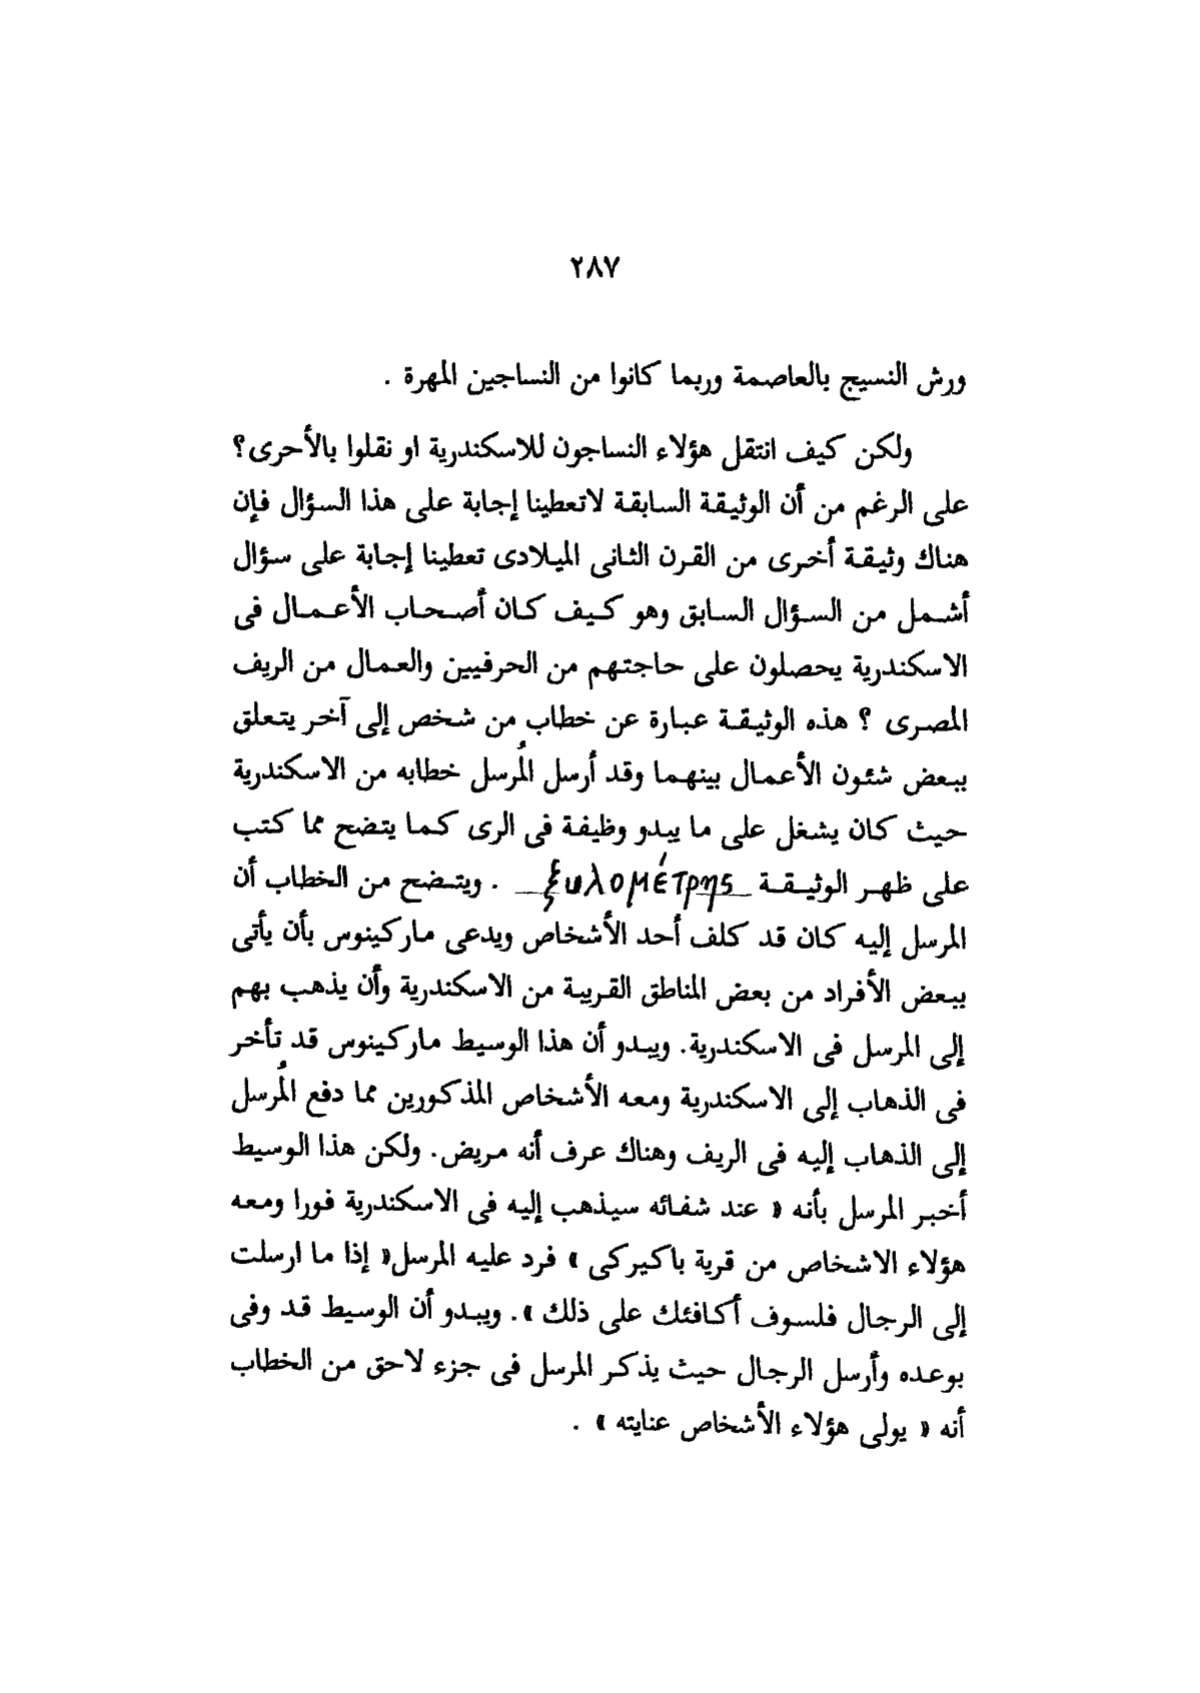 ٢٨٧
ورش النسيج بالعاصمة وربما كانوا من النساجين المهرة .
ولكن كيف انتقل هؤلاء النساجون للاسكندرية او نقلوا بالأحرى؟
على الرغم من أن الوثيقة السابقة لاتعطينا إجابة على هذا السؤال فإن
هناك وثيقة أخرى من القرن الثانى الميلادى تعطينا إجابة على سؤال
أشمل من السؤال السابق وهو كيف كان أصحاب الأعمال فى
الاسكندرية يحصلون على حاجتهم من الحرفيين والعمال من الريف
المصرى ؟ هذه الوثيقة عبارة عن خطاب من شخص إلى آخر يتعلق
ببعض شئون الأعمال بينهما وقد أرسل المُرسل خطابه من الاسكندرية
حيث كان يشغل على ما يبدو وظيفة فى الرى كما يتضح مما كتب
على ظهر الوثيقة ξυλομέτρης . ويتضح من الخطاب أن
المرسل إليه كان قد كلف أحد الأشخاص ويدعى ماركينوس بأن يأتى
ببعض الأفراد من بعض المناطق القريبة من الاسكندرية وأن يذهب بهم
إلى المرسل فى الاسكندرية. ويبدو أن هذا الوسيط ماركينوس قد تأخر
فى الذهاب إلى الاسكندرية ومعه الأشخاص المذكورين مما دفع المُرسل
إلى الذهاب إليه فى الريف وهناك عرف أنه مريض. ولكن هذا الوسيط
أخبر المرسل بأنه « عند شفائه سيذهب إليه فى الاسكندرية فورا ومعه
هؤلاء الاشخاص من قرية باكيركى » فرد عليه المرسل« إذا ما ارسلت
إلى الرجال فلسوف أكافئك على ذلك ». ويبدو أن الوسيط قد وفى
بوعده وأرسل الرجال حيث يذكر المرسل فى جزء لاحق من الخطاب
أنه « يولى هؤلاء الأشخاص عنايته » .